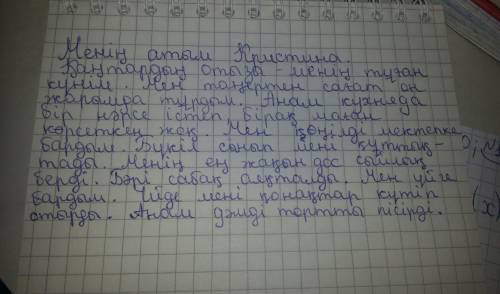 Менің атым Кристина.
Қаңтардың отызы - менің туған
күнім. Мен таңертең сағат он
жарымда тұрдым. Анам кухняда
бір нәрсе істеп, бірақ маған
көрсеткен жоқ. Мен көңілді мектепке
бардым. Бүкіл сынып мені құттық-
тады. Менің ең жақын дос сыйлық
берді. Бәрі сабақ аяқталды. Мен үйге
бардым. Үйде мені қонақтар күтіп
отырды. Анам дәмді тортты пісірді.
(x)